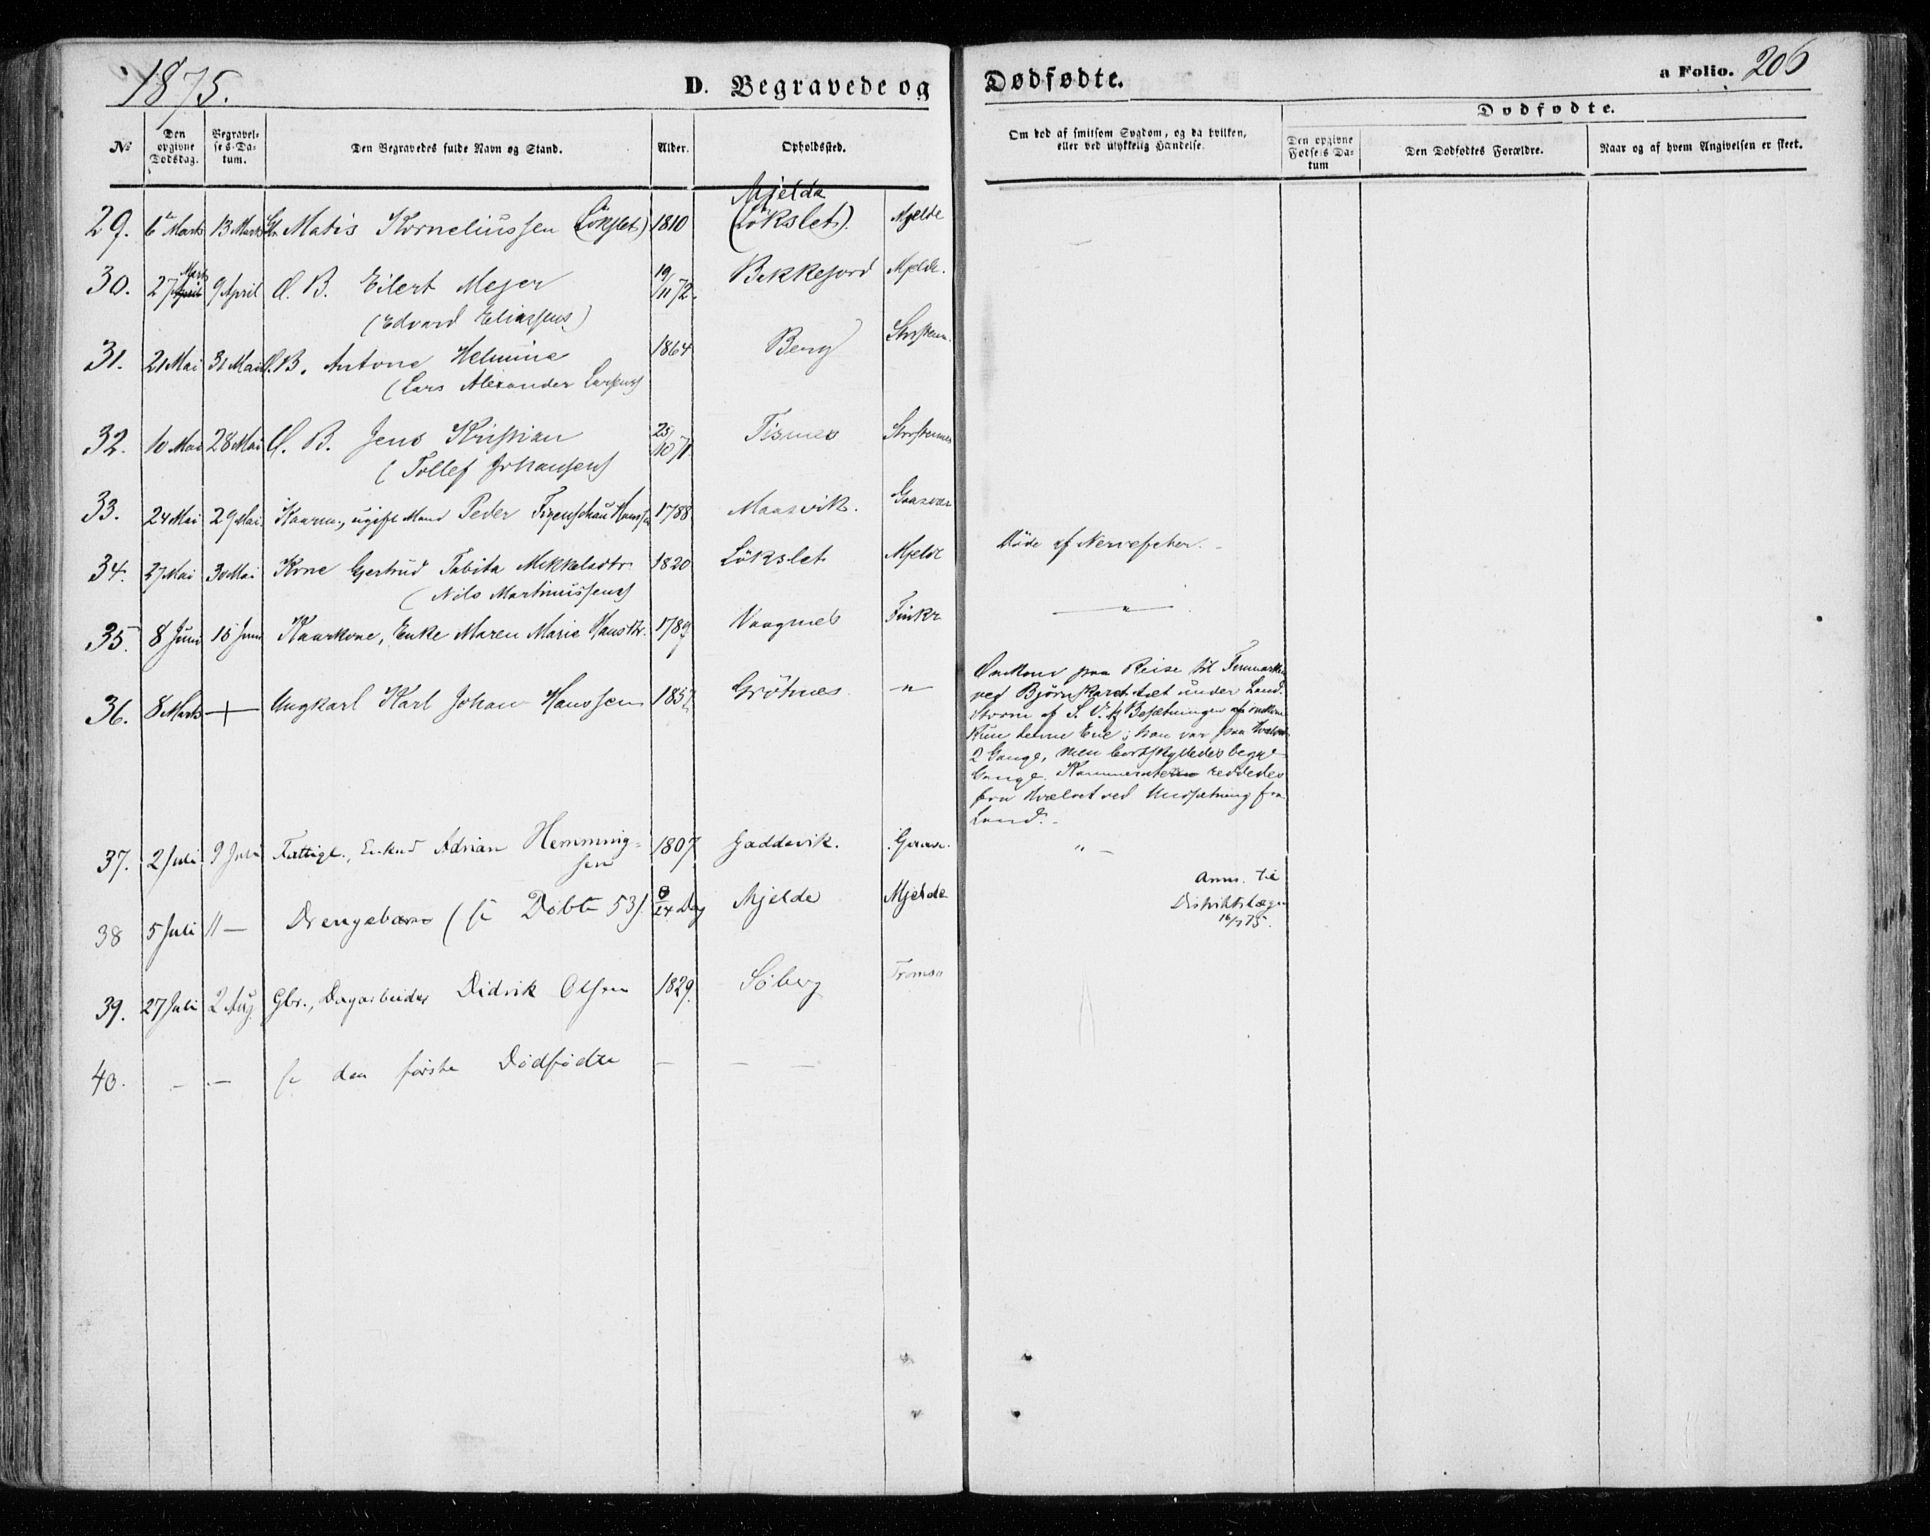 1875.
D. Begravede og Dødfødte.
a Folio. 206
No
Den opgivne Dødsdag.
Begravelses-Datum.
Den Begravedes fulde Navn og Stand.
Alder.
Opholdssted.
Om død af smitsom Sygdom, og da hvilken, eller ved ulykkelig Hændelse.
Dødfødte.
Den opgivne Fødsels Datum
Den Dødfødtes Forældre.
Naar og af hvem Angivelsen er skeet.
29. 6 Marts 13 Marts Matis Korneliussen (Løkslet) 1810 Mjelde (Løkslet). Mjelde
30. 27 Marts 9 April Eilert Mejer 19/11 72. Bekkejord Mjelde.
(Edvard Eliassens)
31. 21 Mai 31 Mai Æ. B. Antone Helmine 1864 Berg Storstenn.
(Lars Alexander Larsens)
32. 10 Mai 28 Mai Æ. B. Jens Kristian 25/10 71. Tisnes Storstennes
(Tollef Johansens)
33. 24 Mai 29 Mai. Kaarm., ugift Mand Peder Figenschau Hanssen 1788. Maasvik. Gaasvær
34. 27 Mai 30 Mai Kone Gjertrud Tabita Mikkelsdtr 1820 Løkslet Mjelde Døde af Nervefeber.
(Nils Martinussens)
35. 8 Juni 15 Juni Kaarkone, Enke Maren Marie Hansdtr. 1789. Vaagnes Finkr "
36. 8 Marts + Ungkarl Karl Johan Hanssen 1857. Grötnes "
Omkom paa Reise til Finmarken
ved Bjørnskaret tæt under Land.
Storm af S. V. Af Besætningen omkom
kun denne Ene; han var paa Hvælvet
2 Gange, men bortskylledes begge
Gange. Kammeraterne reddedes
fra Hvælvet ved Undsætning fra
Land.
37. 2 Juli 9 Juli Fattigl., Enkem Adrian Hemmingsen 1807 Gaddevik. "
38 5 Juli 11 — Drengebarn (se Døbte 53). 8/24 Dag Mjelde Mjelde
Anm. til
Distriktslægen
16/7 75.
39. 27 Juli 2 Aug. Gbr., Dagarbeider Didrik Olsen 1829. Søberg Tromsø
40. — — se den første Dødfødte — — —